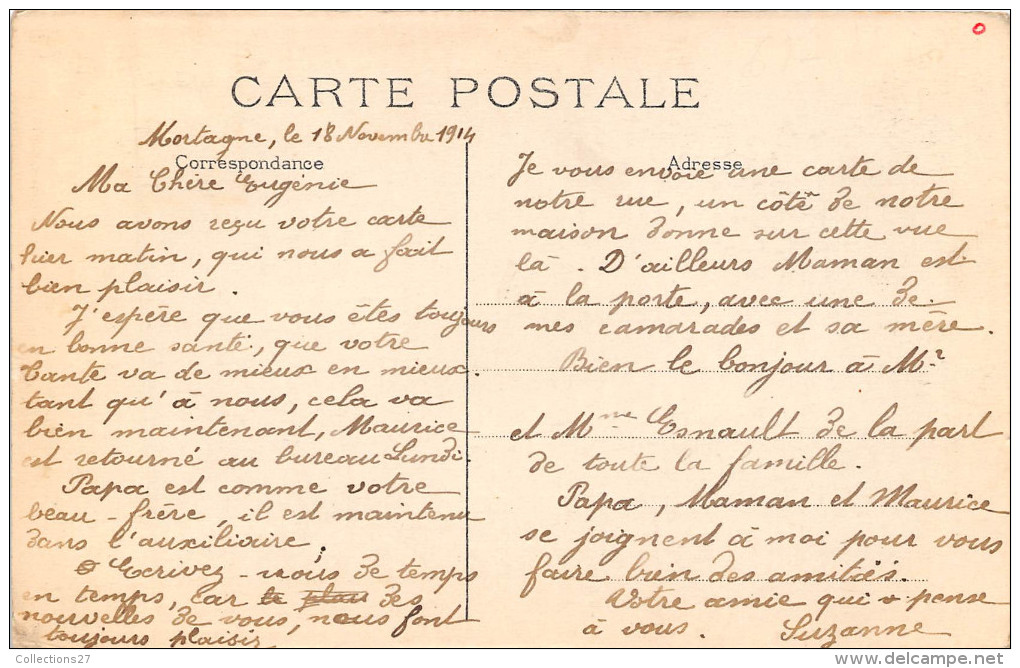 CARTE POSTALE
Mortagne, le 18 Novembre 1914
Correspondance
Ma Chère Eugénie
Nous avons reçu votre carte
hier matin, qui nous a fait
bien plaisir.
J'espère que vous êtes toujours
en bonne santé, que votre
tante va de mieux en mieux.
tant qu'à nous, cela va
bien maintenant, Maurice
est retourné au bureau Lundi.
Papa est comme votre
beau-frère, il est maintenu
dans l'auxiliaire.
Ecrivez-nous de temps
en temps, car le plau des
nouvelles de vous, nous font
toujours plaisir
Adresse
Je vous envoie une carte de
notre rue, un côté de notre
maison donne sur cette vue
là. D'ailleurs Maman est
à la porte, avec une de
mes camarades et sa mère.
Bien le bonjour à Mr
et Mme Esnault de la part
de toute la famille.
Papa, Maman et Maurice
se joignent à moi pour vous
faire bien des amitiés.
Votre amie qui pense
à vous. Suzanne
Collections27
delcampe.net